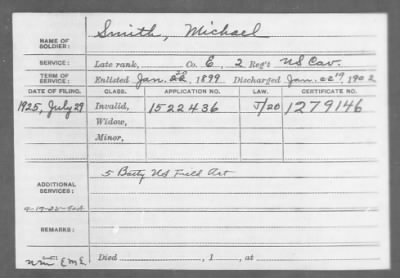 NAME OF SOLDIER: Smith, Michael
SERVICE: Late rank, Co. E, 2 Reg't US Cav.
TERM OF SERVICE: Enlisted Jan. 22d, 1899. Discharged Jan. 22nd, 1902
DATE OF FILING. CLASS. APPLICATION NO. LAW. CERTIFICATE NO.
1925, July 29 Invalid, 1522436 J/20 1279146
Widow,
Minor,
ADDITIONAL SERVICES: 5 Batty US Field Art
REMARKS:
Died , 1 , at